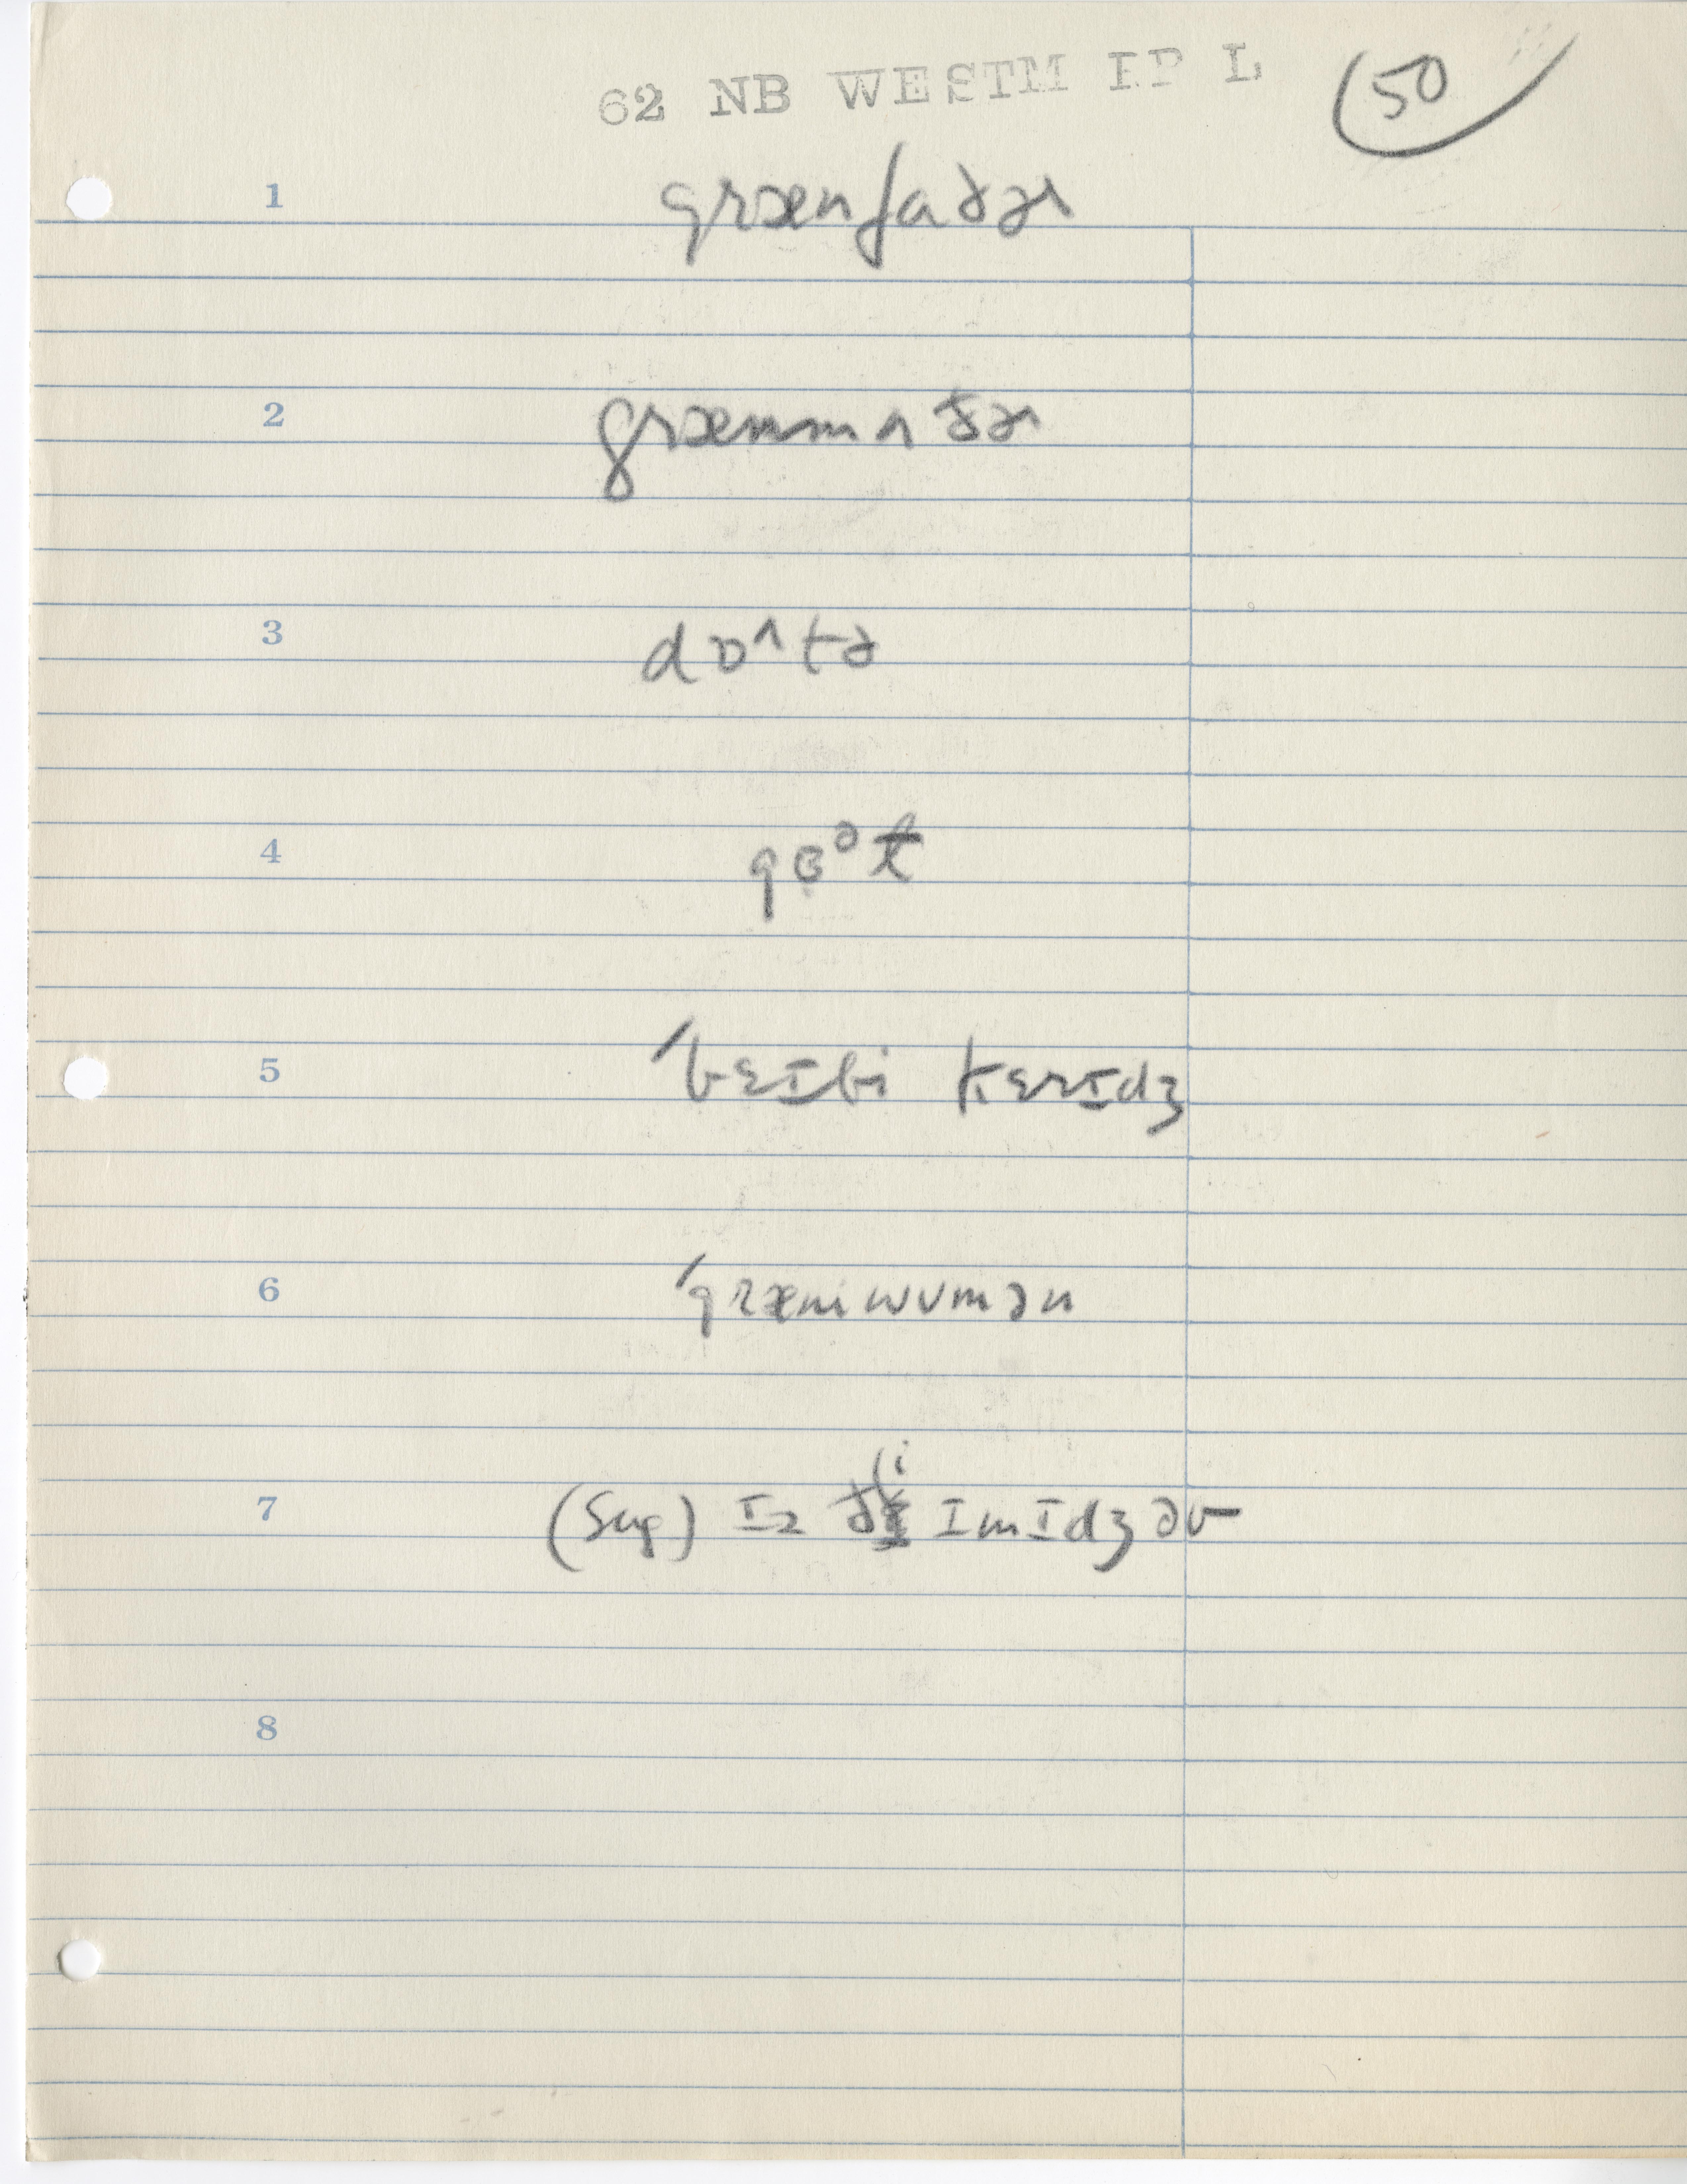 62 NB WESTM IP L
50
1 grænfaðɚ
2 græmmʌðɚ
3 dɒ^tə
4 gɞᵊɫ
5 ˊbɛɪbi kɛrɪdʒ
6 ˊgrænıwʊmən
7 (Sug) ɪz ði ɪmɪdʒ əv
8